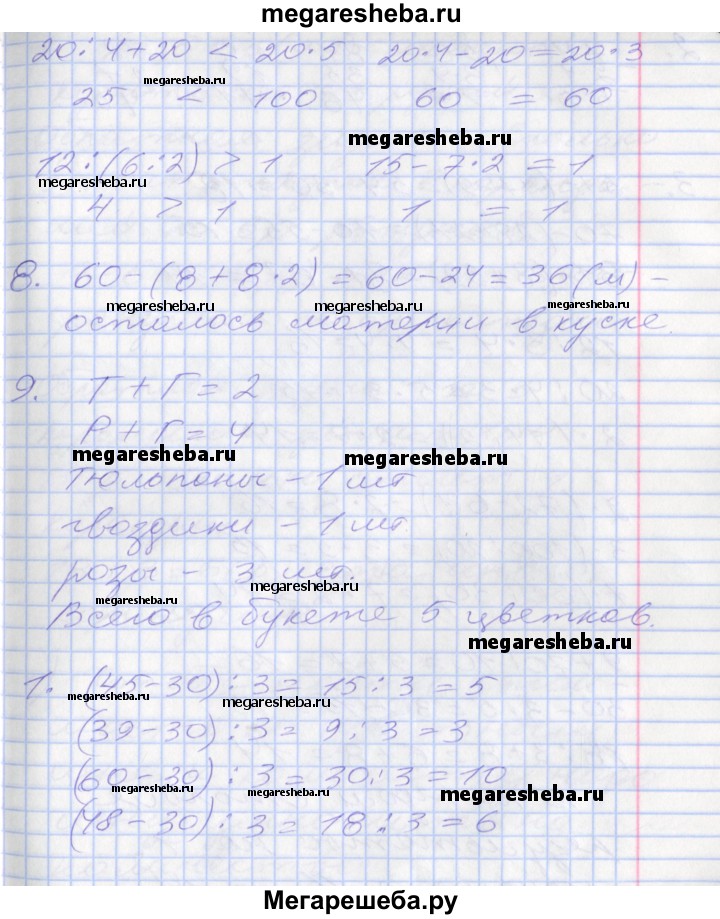 megaresheba.ru
20:4+20 < 20·5 20·4-20=20·3
megaresheba.ru
25 < 100 60 = 60
megaresheba.ru
12:(6:2) > 1 15-7·2 = 1
megaresheba.ru
4 > 1 1 = 1
8. 60-(8+8·2) = 60-24 = 36 (м) -
megaresheba.ru megaresheba.ru megaresheba.ru
осталось материи в куске.
9. Т + Г = 2
Р + Г = 4
megaresheba.ru megaresheba.ru
Тюльпаны - 1 шт
гвоздики - 1 шт.
розы - 3 шт.
megaresheba.ru
megaresheba.ru
Всего в букете 5 цветков.
megaresheba.ru
1. (45-30):3 = 15:3 = 5
megaresheba.ru megaresheba.ru
(39-30):3 = 9:3 = 3
(60-30):3 = 30:3 = 10
megaresheba.ru megaresheba.ru megaresheba.ru
(48-30):3 = 18:3 = 6
Мегарешеба.ру